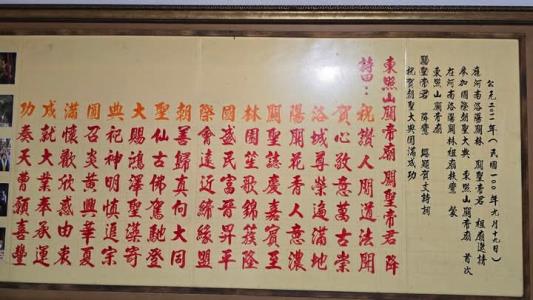 公元二0一一年(民國一00年九月十九日)
應河南洛陽關林 關聖帝君 祖廟邀請
參加國際朝聖大典 東照山關帝廟 首次
在河南洛陽關林祖廟扶鸞 蒙
東照山關帝廟
關聖帝君 降鸞 賜頒賀文詩詞
祝賀朝聖大典圓滿成功
東照山關帝廟 關聖帝君 降
詩曰:
祝讚人間道法開
賀心敬意萬古崇
洛城尊榮遍滿地
陽開花香人意濃
關聖誌慶嘉賓至
林園笙歌錦簇隆
國盛民富晉昇平
際會遠近締緣盟
朝善歸真向大同
聖仙古佛駕馳登
大賜鴻澤聖漢奇
典祀神明慎追宗
圓召炎黃興華夏
滿懷歡欣感由衷
成就大業奉承運
功奏天曹頌喜豐